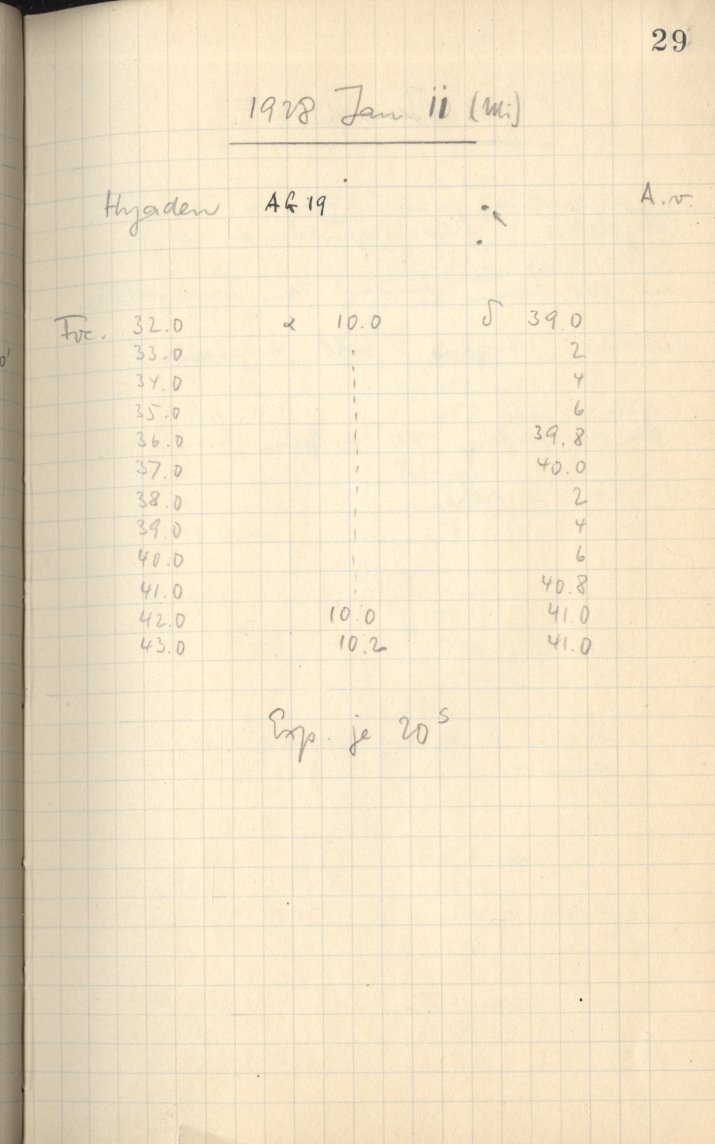 29
1928 Jan. 11 (Mi)
Hyaden AG 19 A.v.
Foc. 32.0 α 10.0 δ 39.0
33.0 2
34.0 4
35.0 6
36.0 39.8
37.0 40.0
38.0 2
39.0 4
40.0 6
41.0 40.8
42.0 10.0 41.0
43.0 10.2 41.0
Exp. je 20s